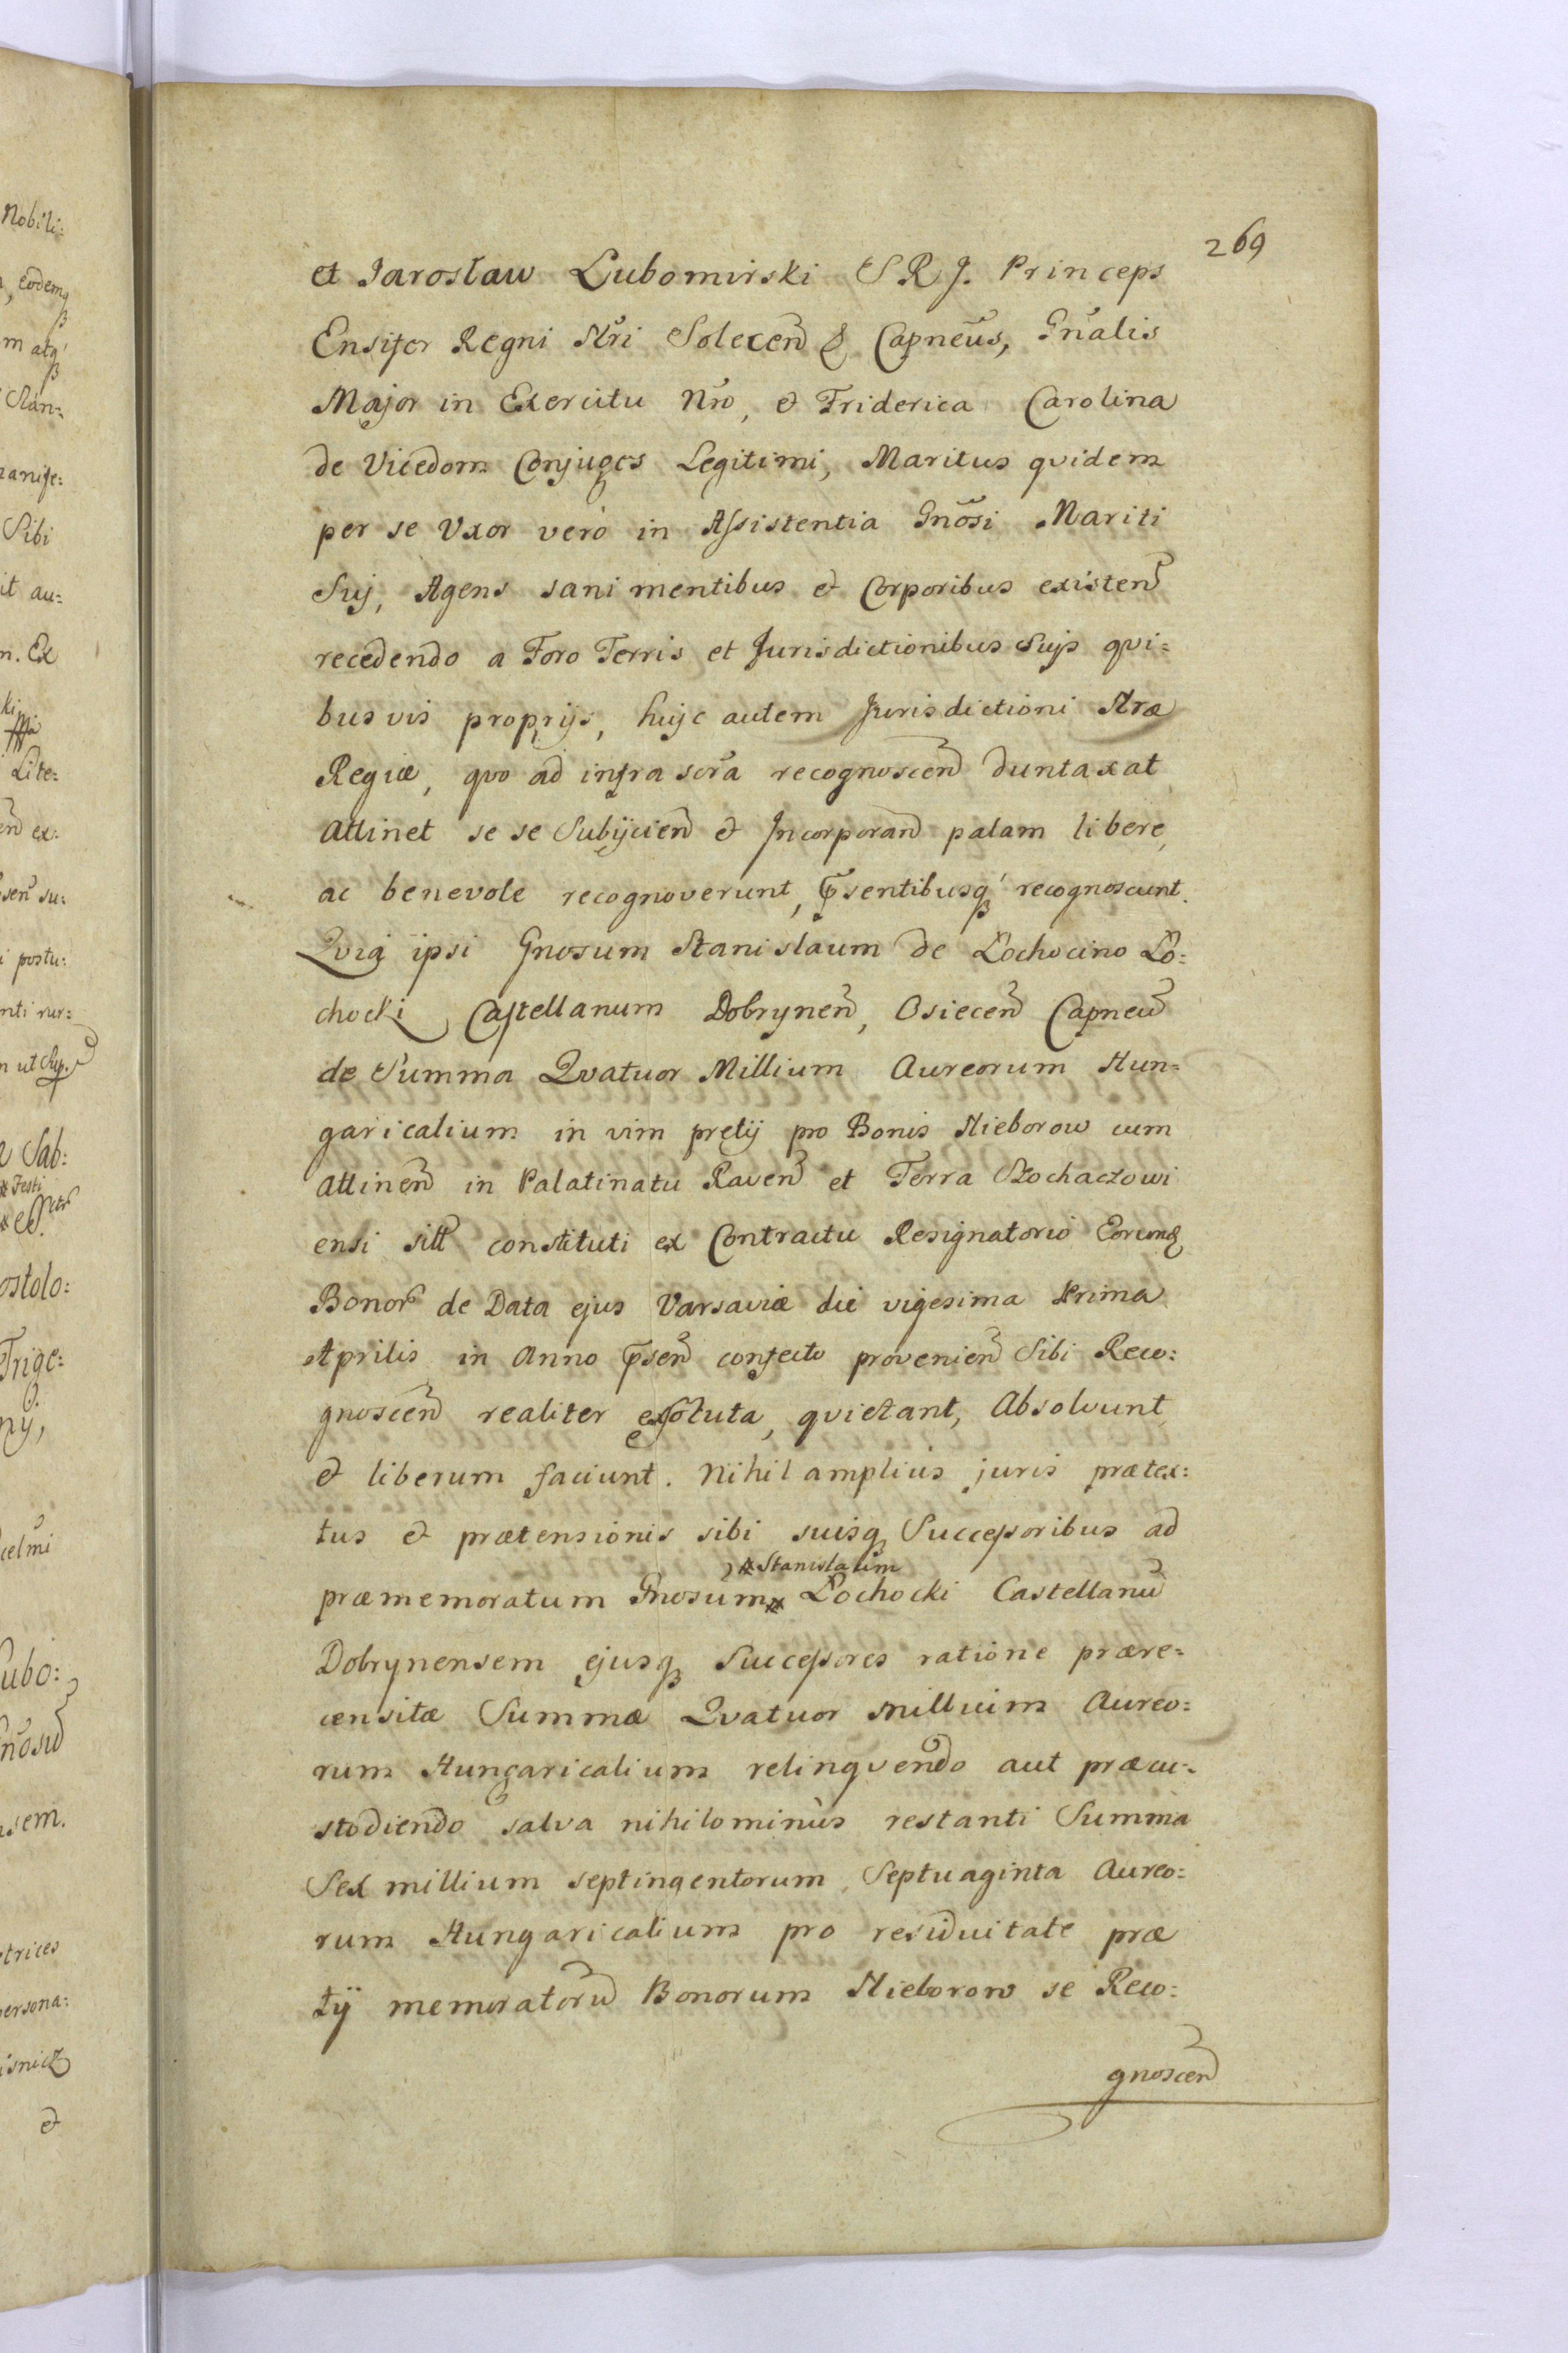 269
et Jarosław Lubomirski S R J. Princeps
Ensifer Regni Nr̃i Solecen̄ & Capneūs, Gn̄alis
Major in Exercitu Nr̃o, et Friderica Carolina
de Vicedom Conjuges Legitimi, Maritus qvidem
per se Uxor verò in Assistentia Gnōsi Mariti
Suj, Agens sani mentibus et Corporibus existen̄
recedendo a Foro Terris et Jurisdictionibus Sujs qvi=
busvis proprijs, hujc autem Jurisdictioni Nræ
Regiæ, qvo ad infra scr̃a recognoscen̄ duntaxat
Attinet se se Subijcien̄ et Incorporan̄ palam libere,
ac benevole recognoverunt, p̄sentibusq́ recognoscunt.
Qvia ipsi Gnosum Stanislaum de Łochocino Ło=
chocki Castellanum Dobrynen̄, Osiecen̄ Capneū
de Summa Qvatuor Millium Aureorum Hun=
garicalium in vim pretij pro Bonis Nieborow cum
Attinen̄ in Palatinatu Raven̄ et Terra Sochaczowi
ensi sitt̄ constituti ex Contractu Resignatorio Eorumd
Bonor̄ de Data ejus Varsaviæ die vigesima Prima
Aprilis in Anno p̄sen̄ confecto provenien̄ Sibi Reco=
gnoscen̄ realiter exsoluta, qvietant, Absolvunt
et liberum faciunt. Nihil amplius juris prætex=
tus et prætensionis sibi suisq Successoribus ad
※ Stanislaum
præmemoratum Gnosum※ Łochocki Castellanū
Dobrynensem ejusq Successores ratione prære=
censitæ Summæ Qvatuor millium Aureo=
rum Hungaricalium relinqvendo aut præcu=
stodiendo salva nihilominùs restanti Summa
Sex millium septingentorum Septuaginta Aureo=
rum Hungaricalium pro residuitate præ
tij memoratorū Bonorum Nieborow se Reco=
gnoscen̄